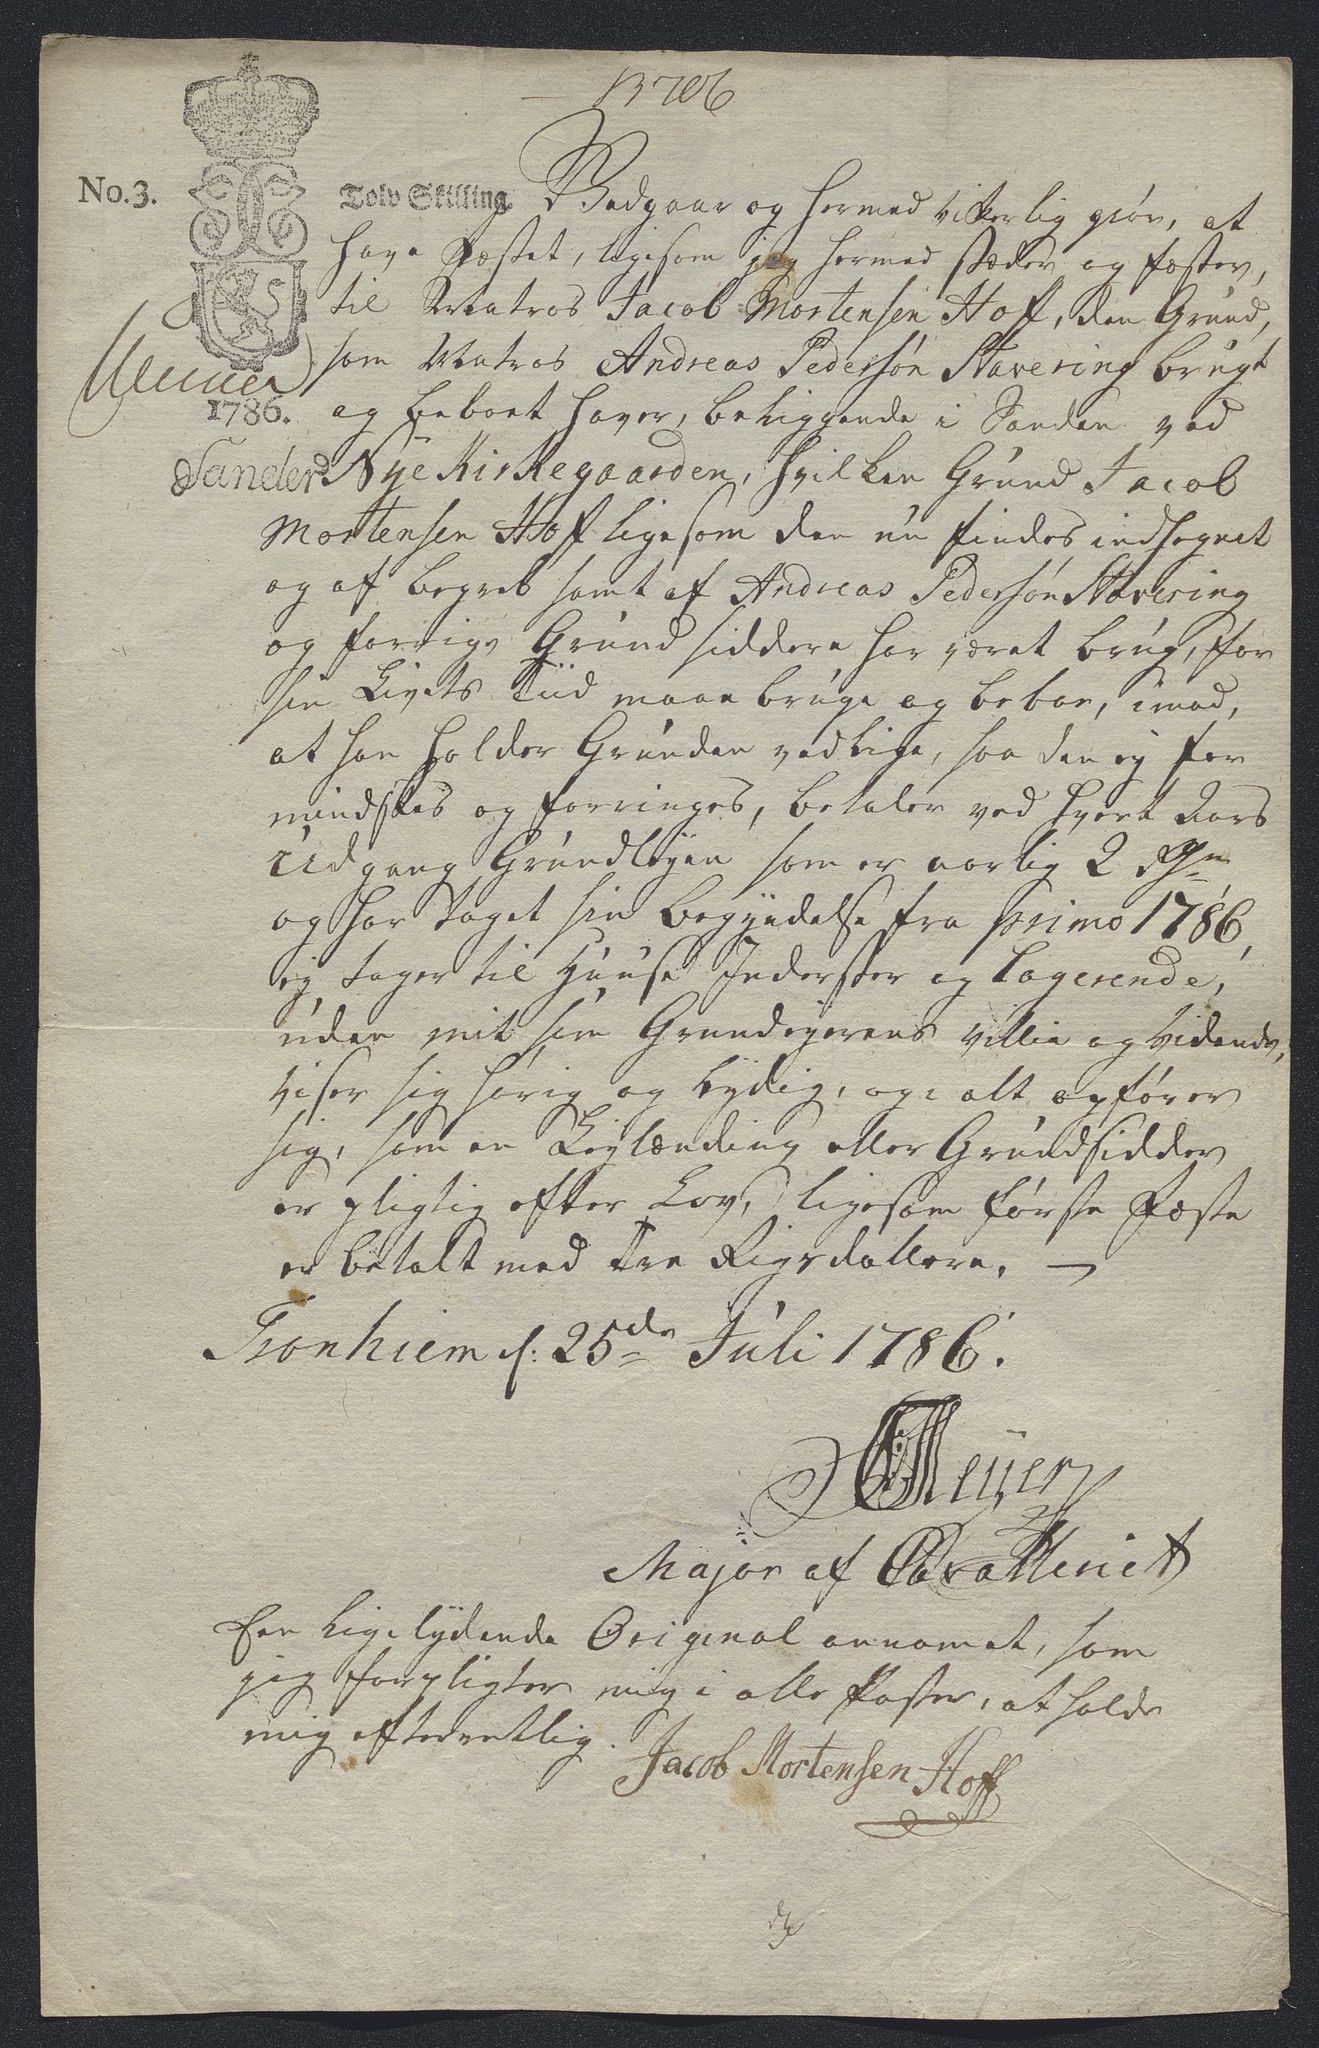 13706
No. 3.
Tolv Skilling.
1786.
Bedgaar og hermed vitterlig giör, at
have fæstet, ligesom jeg hermed stæder og fæster,
til Matros Jacob Mortensen Hoff, den Grund,
som Matros Andreas Pedersøn Stavering brugt
og beboet haver, beliggende i Sanden ved
Nye Kirkegaarden, hvilken Grund Jacob
Mortensen Hoff ligesom den nu findes indhegnet
og af begreb samt af Andreas Pedersøn Stavering
og forrige Grundsiddere har været brugt, for
sin Livets Tiid maae bruge og beboe, imod,
at han holder Grunden vedlige, saa den ej for
mindskes og forringes, betaler ved hvert Aars
Udgang Grundlejen som er aarlig 2
og har taget sin begyndelse fra primo 1786,
ej tager til Huuse Inderster og Logerende,
uden mit som Grundejerens villie og vidende,
viser sig hørig og lydig, og i alt opfører
sig, som en Leylænding eller Grundsidder
er pligtig efter Lov, ligesom første Fæste
er betalt med tre Rigsdallere.
Tronhiem d: 25de Juli 1786.
Meyer
Major af Cavalleriet
Een ligelydende Original annamet, som
jeg forpligter mig i alle Poster, at holde
mig efterretlig.
Jacob Mortensen Hoff